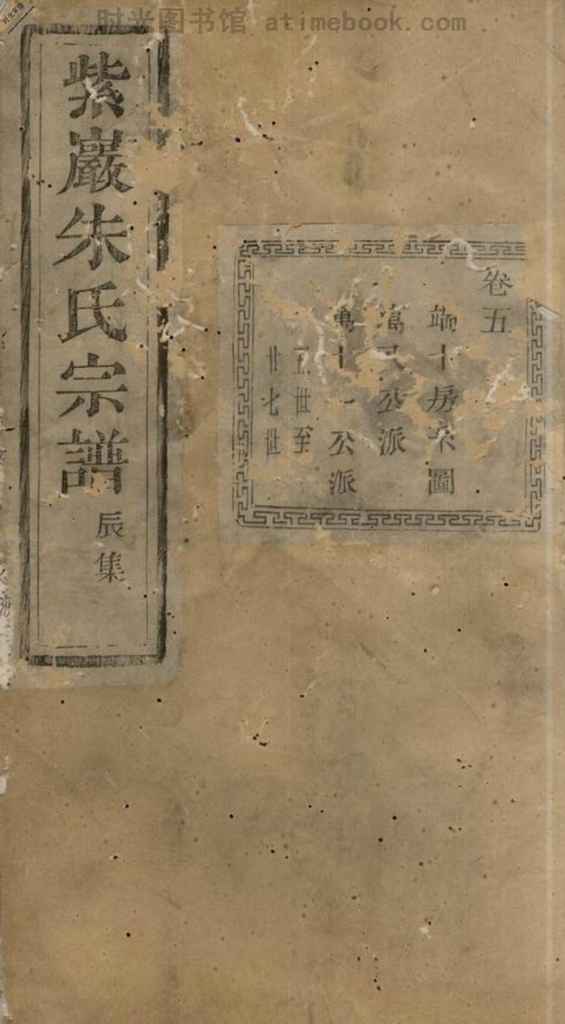 时光图书馆 atimebook.com
紫巖朱氏宗譜
辰集
卷五
十房 圖
公派
萬十一公派
世至
廿七世